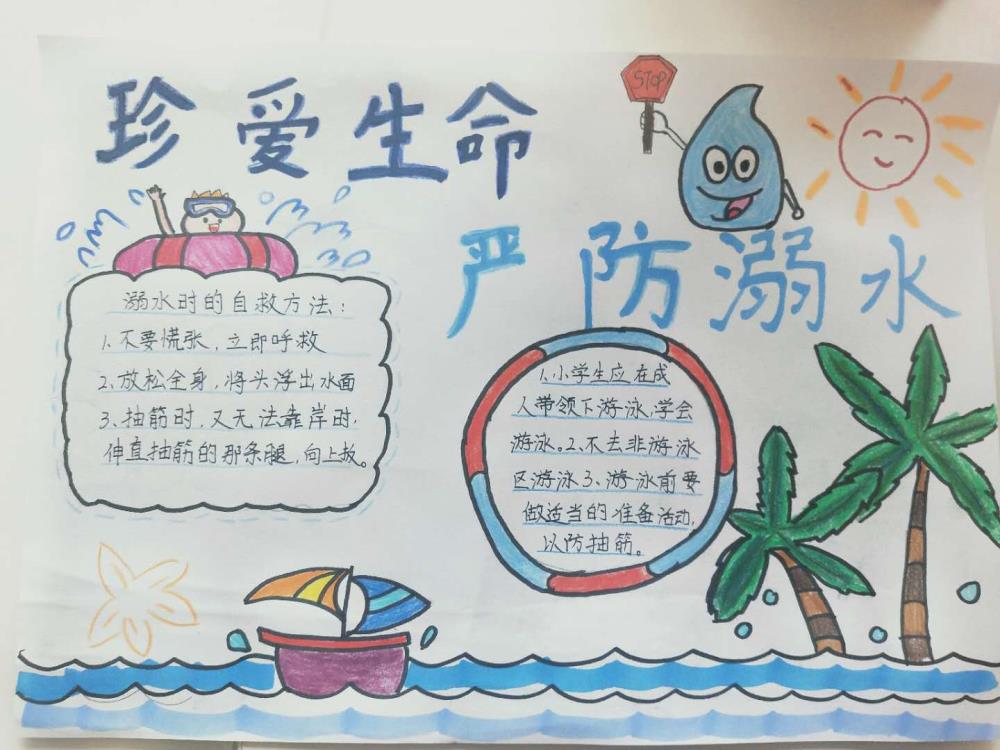 珍爱生命
STOP
严防溺水
溺水时的自救方法:
1、不要慌张,立即呼救
2、放松全身,将头浮出水面
3、抽筋时,又无法靠岸时,
伸直抽筋的那条腿,向上扳。
1、小学生应在成
人带领下游泳,学会
游泳。2、不去非游泳
区游泳3、游泳前要
做适当的准备活动,
以防抽筋。